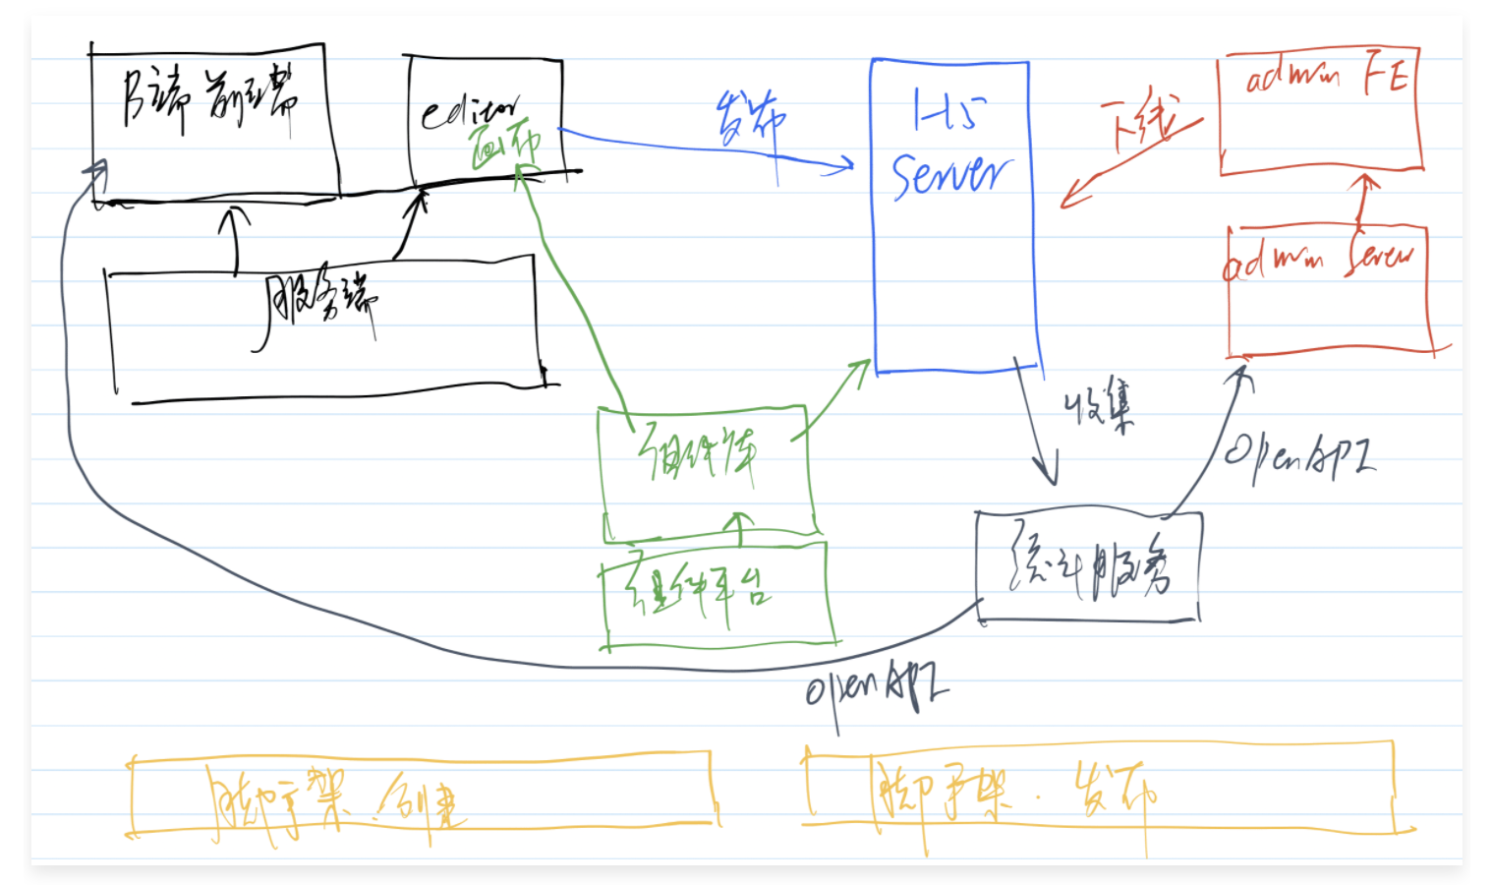 B端 前端
editor
画布
发布
H5
Server
下线
admin FE
admin Server
服务端
收集
OpenAPI
组件库
统计服务
组件平台
OpenAPI
脚手架.创建
脚手架. 发布